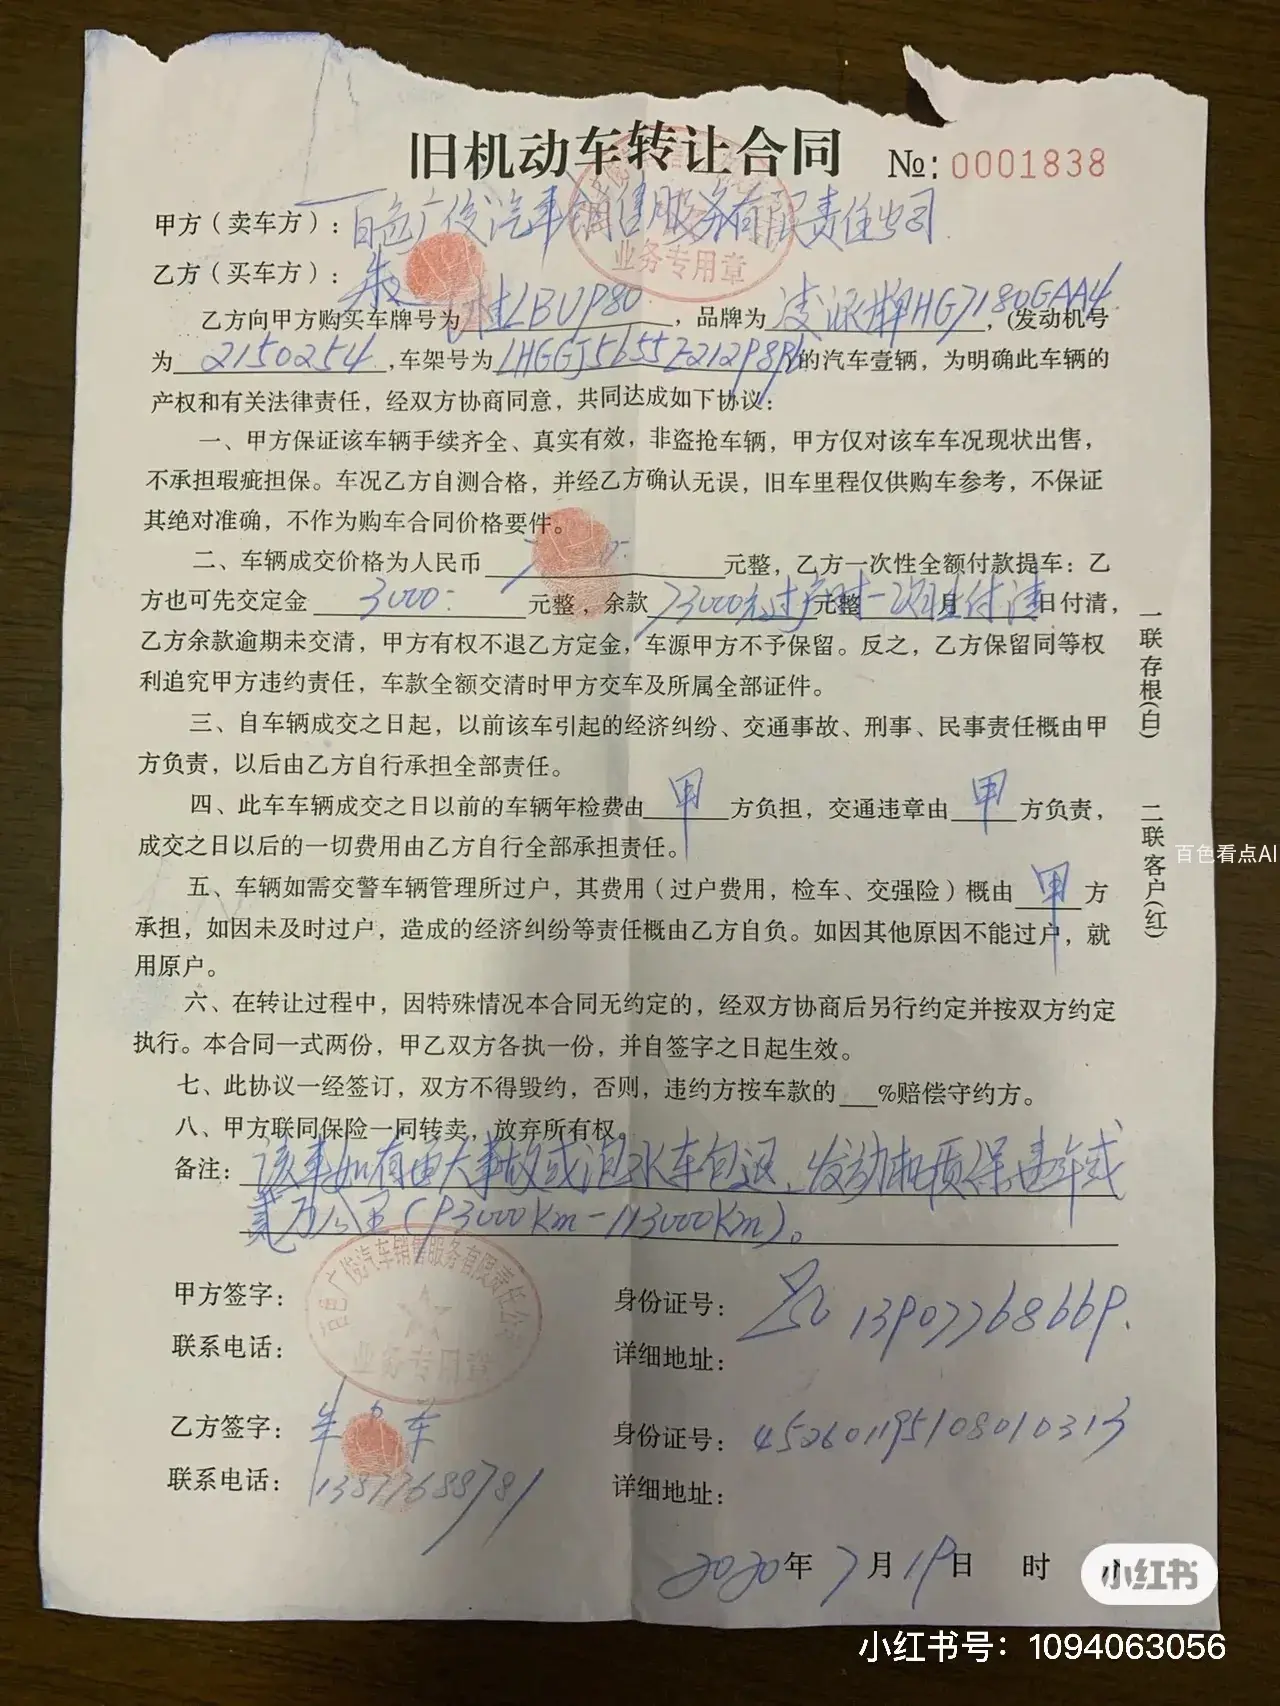 旧机动车转让合同 №: 0001838
甲方（卖车方）：百色广俊汽车销售服务有限责任公司
业务专用章
乙方（买车方）：朱
乙方向甲方购买车牌号为桂LBUP80，品牌为凌派牌HG7180GAA4，(发动机号
为2150254，车架号为的汽车壹辆，为明确此车辆的
产权和有关法律责任，经双方协商同意，共同达成如下协议：
一、甲方保证该车辆手续齐全、真实有效，非盗抢车辆，甲方仅对该车车况现状出售，
不承担瑕疵担保。车况乙方自测合格，并经乙方确认无误，旧车里程仅供购车参考，不保证
其绝对准确，不作为购车合同价格要件。
二、车辆成交价格为人民币元整，乙方一次性全额付款提车：乙
方也可先交定金3000元整，余款73000元过户时一次性付清元整月日付清，
乙方余款逾期未交清，甲方有权不退乙方定金，车源甲方不予保留。反之，乙方保留同等权
利追究甲方违约责任，车款全额交清时甲方交车及所属全部证件。
三、自车辆成交之日起，以前该车引起的经济纠纷、交通事故、刑事、民事责任概由甲
方负责，以后由乙方自行承担全部责任。
四、此车车辆成交之日以前的车辆年检费由甲方负担，交通违章由甲方负责，
成交之日以后的一切费用由乙方自行全部承担责任。
五、车辆如需交警车辆管理所过户，其费用（过户费用，检车、交强险）概由甲方
承担，如因未及时过户，造成的经济纠纷等责任概由乙方自负。如因其他原因不能过户，就
用原户。
六、在转让过程中，因特殊情况本合同无约定的，经双方协商后另行约定并按双方约定
执行。本合同一式两份，甲乙双方各执一份，并自签字之日起生效。
七、此协议一经签订，双方不得毁约，否则，违约方按车款的__%赔偿守约方。
八、甲方联同保险一同转卖，放弃所有权。
备注：该车如有重大事故或泡水车包退、发动机质保壹年或
贰万公里（93000Km-113000Km）。
百色广俊汽车销售服务有限责任公司
业务专用章
甲方签字： 身份证号：13907768669.
联系电话： 详细地址：
乙方签字：朱 身份证号：452601195108010313
联系电话：13877688781 详细地址：
2020年7月19日 时
一联存根(白) 二联客户(红)
百色看点AI
小红书
小红书号：1094063056